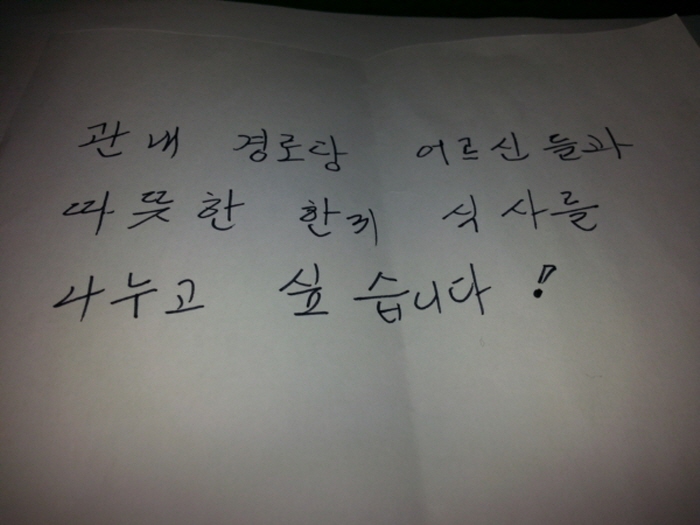 관내 경로당 어르신들과
따뜻한 한끼 식사를
나누고 싶습니다!